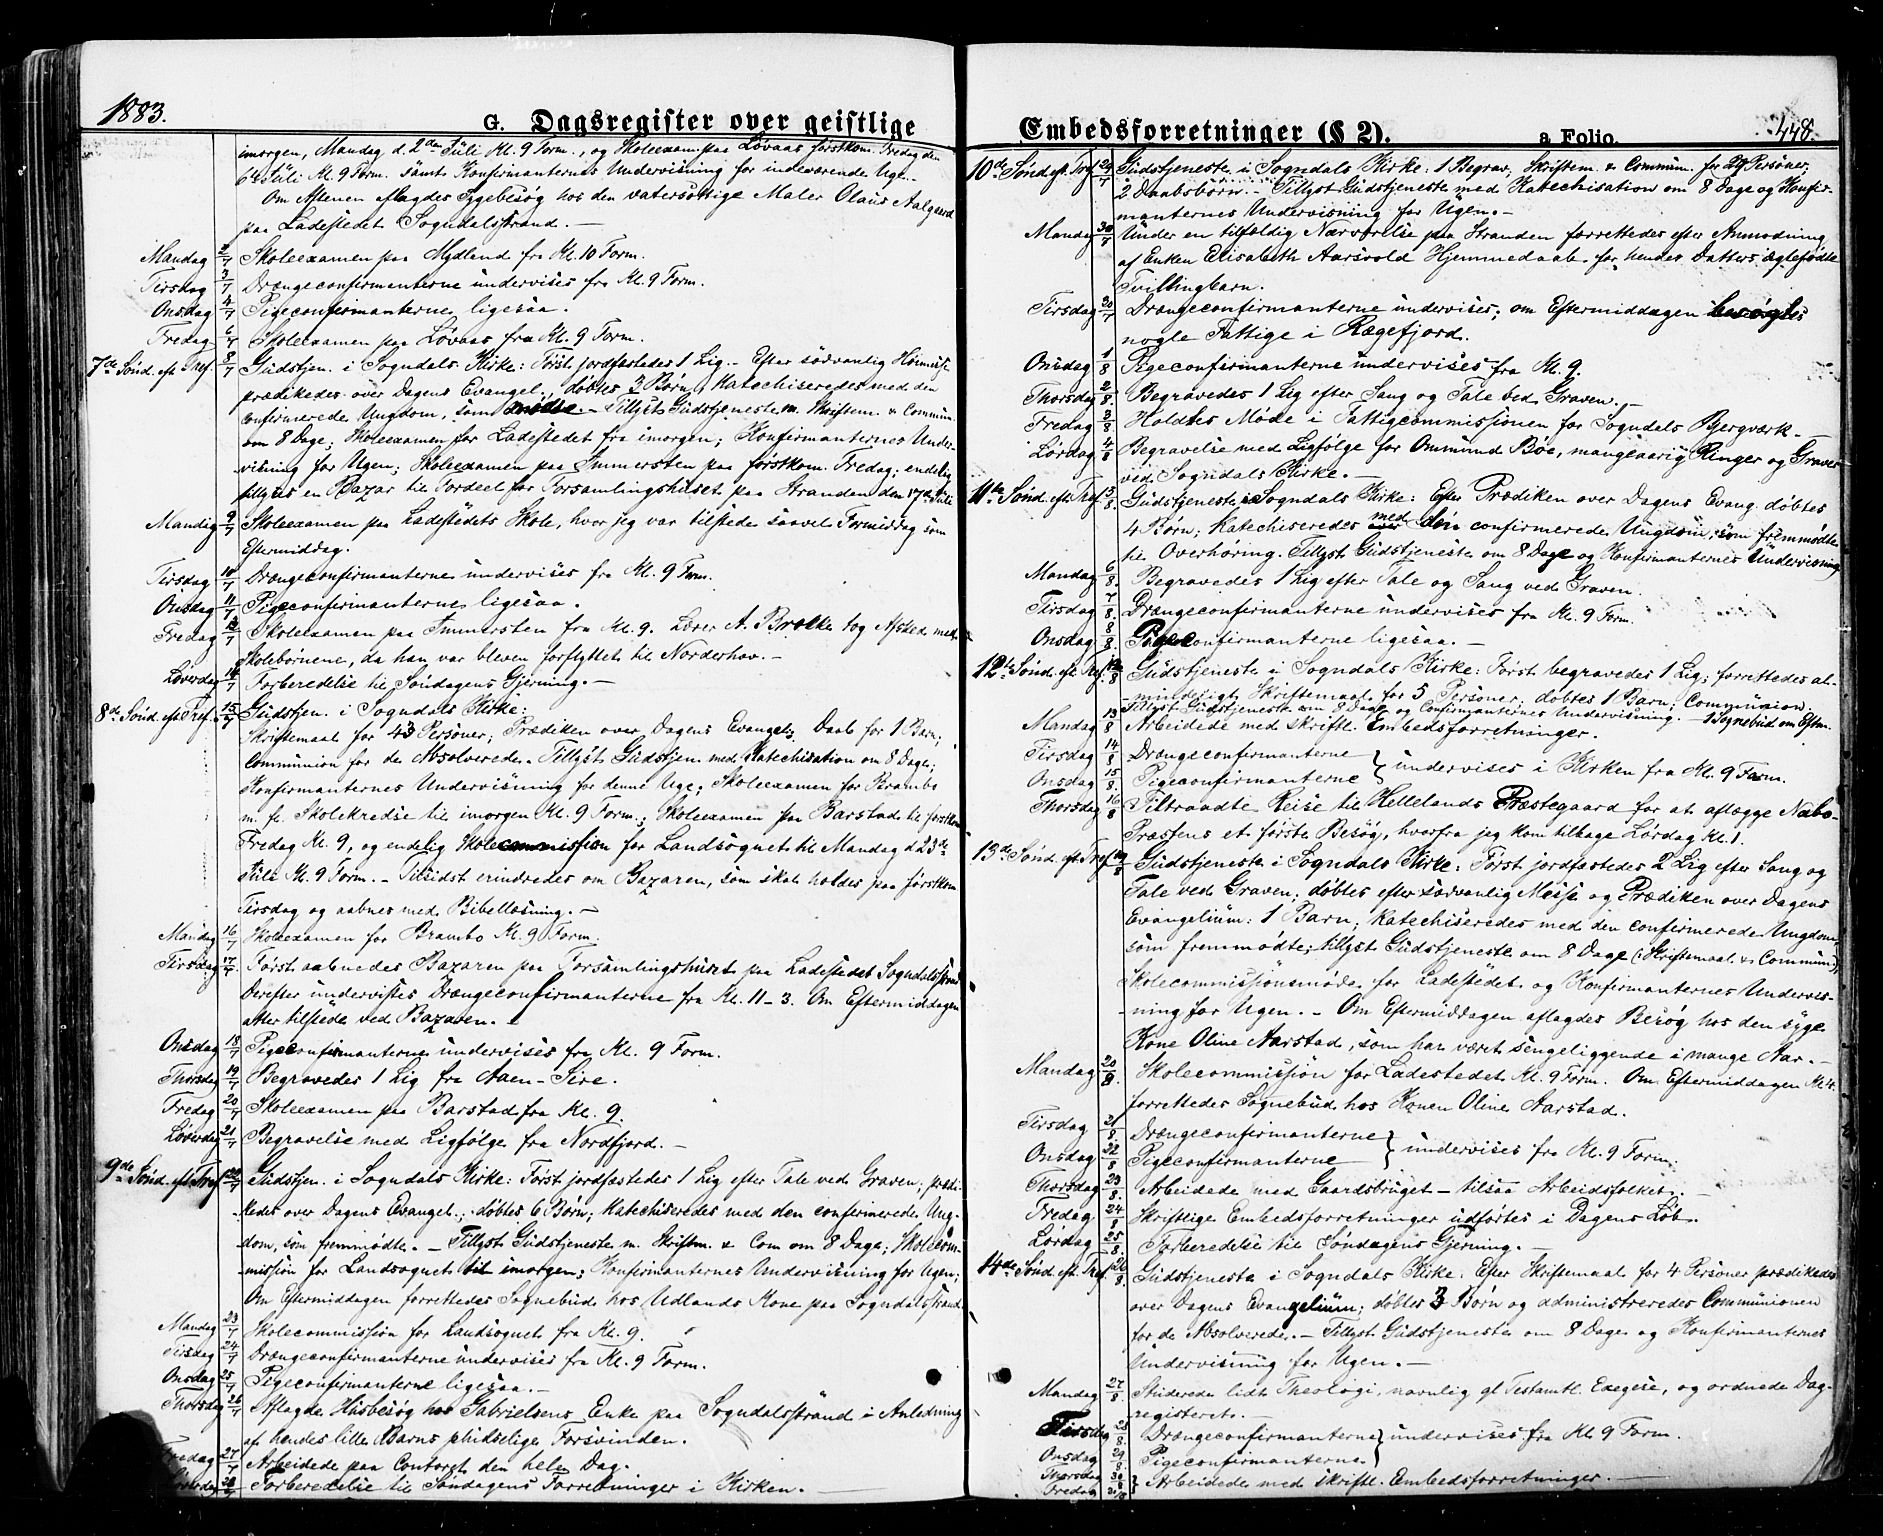 1883.
G. Dagsregister over geistlige
imorgen, Mandag d. 2den Juli Kl. 9 Form., og Skoleexam. paa Løvaas førstkom. Fredag den
6te Juli Kl. 9 Form. samt Konfirmanternes Undervisning for indeværende Uge.
Om Aftenen aflagdes Sygebesøg hos den vatersottige Maler Olaus Aalgaard
paa Ladestedet Sogndalsstrand. —
Mandag 2/7 Skoleexamen paa Mydland fra Kl. 10 Form.
Tirsdag 3/7 Drængeconfirmanterne undervises fra Kl. 9 Form.
Onsdag 4/7 Pigeconfirmanterne ligesaa.
Fredag 6/7 Skoleexamen paa Løvaas fra Kl. 9 Form.
7de Sønd. eft. Tref. 8/7 Gudstjen. i Sogndals Kirke: Først jordfæstedes 1 Lig. — Efter sædvanlig Høimesse
prædikedes over Dagens Evangel., døbtes 3 Børn, Katechiseredes med den
confirmerede Ungdom, som mødte. — Tillyst Gudstjeneste m. Skriftem. & Commun.
om 8 Dage; Skoleexamen for Ladestedet fra imorgen; Konfirmanternes Under-
visning for Ugen; Skoleexamen paa Immersten paa førstkom. Fredag; endelig
tillystes en Bazar til Fordeel for Forsamlingshuset paa Stranden den 17de Juli
Mandag 9/7 Skoleexamen paa Ladestedets Skole, hvor jeg var tilstede saavel Formiddag som
Eftermiddag.
Tirsdag 10/7 Drængeconfirmanterne undervises fra Kl. 9 Form.
Onsdag 11/7 Pigeconfirmanterne ligesaa.
Fredag 13/7 Skoleexamen paa Immersten fra Kl. 9. Lærer A. Brække tog Afsked med
Skolebørnene, da han var bleven forflyttet til Norderhov. —
Løverdag 14/7 Forberedelse til Søndagens Gjerning. —
8de Sønd. eft. Tref. 15/7 Gudstjen. i Sogndals Kirke:
Skriftemaal for 43 Personer; Prædiken over Dagens Evangel., Daab for 1 Barn;
Communion for de Absolverede. — Tillyst Gudstjen. med Katechisation om 8 Dage;
Konfirmanternes Undervisning for denne Uge; Skoleexamen for Brambo
m. fl. Skolekredse til imorgen Kl. 9 Form.; Skoleexamen paa Barstad til førstkom.
Fredag Kl. 9, og endelig Skolecommission for Landsognet til Mandag d. 23de
Juli Kl. 9 Form. — Tilsidst erindredes om Bazaren, som skal holdes paa førstkom.
Tirsdag og aabnes med Bibellæsning. —
Mandag 16/7 Skoleexamen for Brambo Kl. 9 Form.
Tirsdag 17/7 Først aabnedes Bazaren paa Forsamlingshuset paa Ladestedet Sogndalsstrand
Derefter undervistes Drængeconfirmanterne fra Kl. 11–3. Om Eftermiddagen
atter tilstede ved Bazaren. —
Onsdag 18/7 Pigeconfirmanterne undervises fra Kl. 9 Form.
Thorsdag 19/7 Begravedes 1 Lig fra Aaen-Sire.
Fredag 20/7 Skoleexamen paa Barstad fra Kl. 9.
Løverdag 21/7 Begravelse med Ligfølge fra Nordfjord. —
9de Sønd. eft. Tref. 22/7 Gudstjen. i Sogndals Kirke: Først jordfæstedes 1 Lig efter Tale ved Graven; prædi-
kedes over Dagens Evangel.; døbtes 6 Børn; Katechiseredes med den confirmerede Ung-
dom, som fremmødte. — Tillyst Gudstjeneste m. Skriftm. & Com om 8 Dage; Skolecom-
mission for Landsognet til imorgen; Konfirmanternes Undervisning for Ugen;
Om Eftermiddagen forrettedes Sognebud hos Udlands Kone paa Sogndalsstrand.
Mandag 23/7 Skolecommission for Landsognet fra Kl. 9.
Tirsdag 24/7 Drængeconfirmanterne undervises fra Kl. 9 Form.
Onsdag 25/7 Pigeconfirmanterne ligesaa. —
Thorsdag 26/7 Aflagde Husbesøg hos Gabrielsens Enke paa Sogndalsstrand i Anledning
af hendes lille Barns pludselige Forsvinden.
Fredag 27/7 Arbeidede paa Contoret den hele Dag.
28/7 Forberedelse til Søndagens Forretninger i Kirken. —
Embedsforretninger (§ 2).
a Folio.
448.
10de Sønd. eft. Tref. 29/7 Gudstjeneste i Sogndals Kirke: 1 Begrav., Skriftem. & Commun. for Personer;
2 Daabsbørn. — Tillyst Gudstjeneste med Katechisation om 8 Dage og Konfir-
manternes Undervisning for Ugen. —
Mandag 30/7 Under en tilfældig Nærværelse paa Stranden forrettedes efter Anmodning
af Enken Elisabeth Aarsvold Hjemmedaab for hendes Datters ægtefødte
Tvillingbarn.
Tirsdag Drængeconfirmanterne undervises; om Eftermiddagen besøgtes
nogle Fattige i Rægefjord.
Onsdag 1/8 Pigeconfirmanterne undervises fra Kl. 9.
Thorsdag 2/8 Begravedes 1 Lig efter Sang og Tale ved Graven. —
Fredag 3/8 Holdtes Møde i Fattigcommissionen for Sogndals Bjergværk —
Lørdag 4/8 Begravelse med Ligfølge for Ommund Bøe, mangeaarig Ringer og Graver
ved Sogndals Kirke. —
11te Sønd. eft. Tref. 5/8 Gudstjeneste i Sogndals Kirke: Efter Prædiken over Dagens Evang. døbtes
4 Børn; Katechiseredes med den confirmerede Ungdom, som fremmødte
til Overhøring. Tillyst Gudstjeneste om 8 Dage og Konfirmanternes Undervisning
Mandag 6/8 Begravedes 1 Lig efter Tale og Sang ved Graven.
Tirsdag 7/8 Drængeconfirmanterne undervises fra Kl. 9 Form.
Onsdag 8/8 Pigeconfirmanterne ligesaa. —
12te Sønd. eft. Tref. 12/8 Gudstjeneste i Sogndals Kirke: Først begravedes 1 Lig; forrettedes al-
mindeligt Skriftemaal for 5 Personer; døbtes 1 Barn; Communion.
Tillyst Gudstjeneste om 8 Dage og Confirmanternes Undervisning. — 1 Sognebud om Eftm.
Mandag 13/8 Arbeidede med skriftl. Embedsforretninger.
Tirsdag 14/8 Drængeconfirmanterne
Onsdag 15/8 Pigeconfirmanterne } undervises i Kirken fra Kl. 9 Form.
Thorsdag 16/8 Tiltraadte Reise til Hellelands Præstegaard for at aflægge Nabo-
Præsten et første Besøg, hvorfra jeg kom tilbage Lørdag Kl. 1.
13de Sønd. eft. Tref. 19/8 Gudstjeneste i Sogndals Kirke: Først jordfæstedes 2 Lig efter Sang og
Tale ved Graven; døbtes efter sædvanlig Messe og Prædiken over Dagens
Evangelium: 1 Barn; Katechiseredes med den confirmerede Ungdom,
som fremmødte; tillyst Gudstjeneste om 8 Dage (Skriftemaal & Commun.),
Skolecommissionsmøde for Ladestedet og Konfirmanternes Undervis-
ning for Ugen. — Om Eftermiddagen aflagdes Besøg hos den syge
Kone Oline Aarstad, som har været sengeliggende i mange Aar. —
Mandag 20/8 Skolecommission for Ladestedet Kl. 9 Form. Om Eftermiddagen Kl. 4
forrettedes Sognebud hos Konen Oline Aarstad.
Tirsdag 21/8 Drængeconfirmanterne
Onsdag 22/8 Pigeconfirmanterne } undervises fra Kl. 9 Form.
Thorsdag 23/8 Arbeidede med Gaardsbruget — tilsaa Arbeidsfolket. —
Fredag 24/8 Skriftlige Embedsforretninger udførtes i Dagens Løb.
Lørdag 25/8 Forberedelse til Søndagens Gjerning. —
14de Sønd. eft. Tref. 26/8 Gudstjeneste i Sogndals Kirke: Efter Skriftemaal for 4 Personer prædikedes
over Dagens Evangelium; døbtes 3 Børn og administreredes Communionen
for de Absolverede. — Tillyst Gudstjeneste om 8 Dage og Konfirmanternes
Undervisning for Ugen. —
Mandag 27/8 Studerede lidt Theologi, navnlig gl. Testamtl. Exegese, og ordnede Dag-
registeret. —
Tirsdag 28/8 Drængeconfirmanterne } undervises fra Kl. 9 Form.
Onsdag 29/8 Pigeconfirmanterne }
Thorsdag 30/8 } Arbeidede med skriftl. Embedsforretninger. —
Fredag 31/8